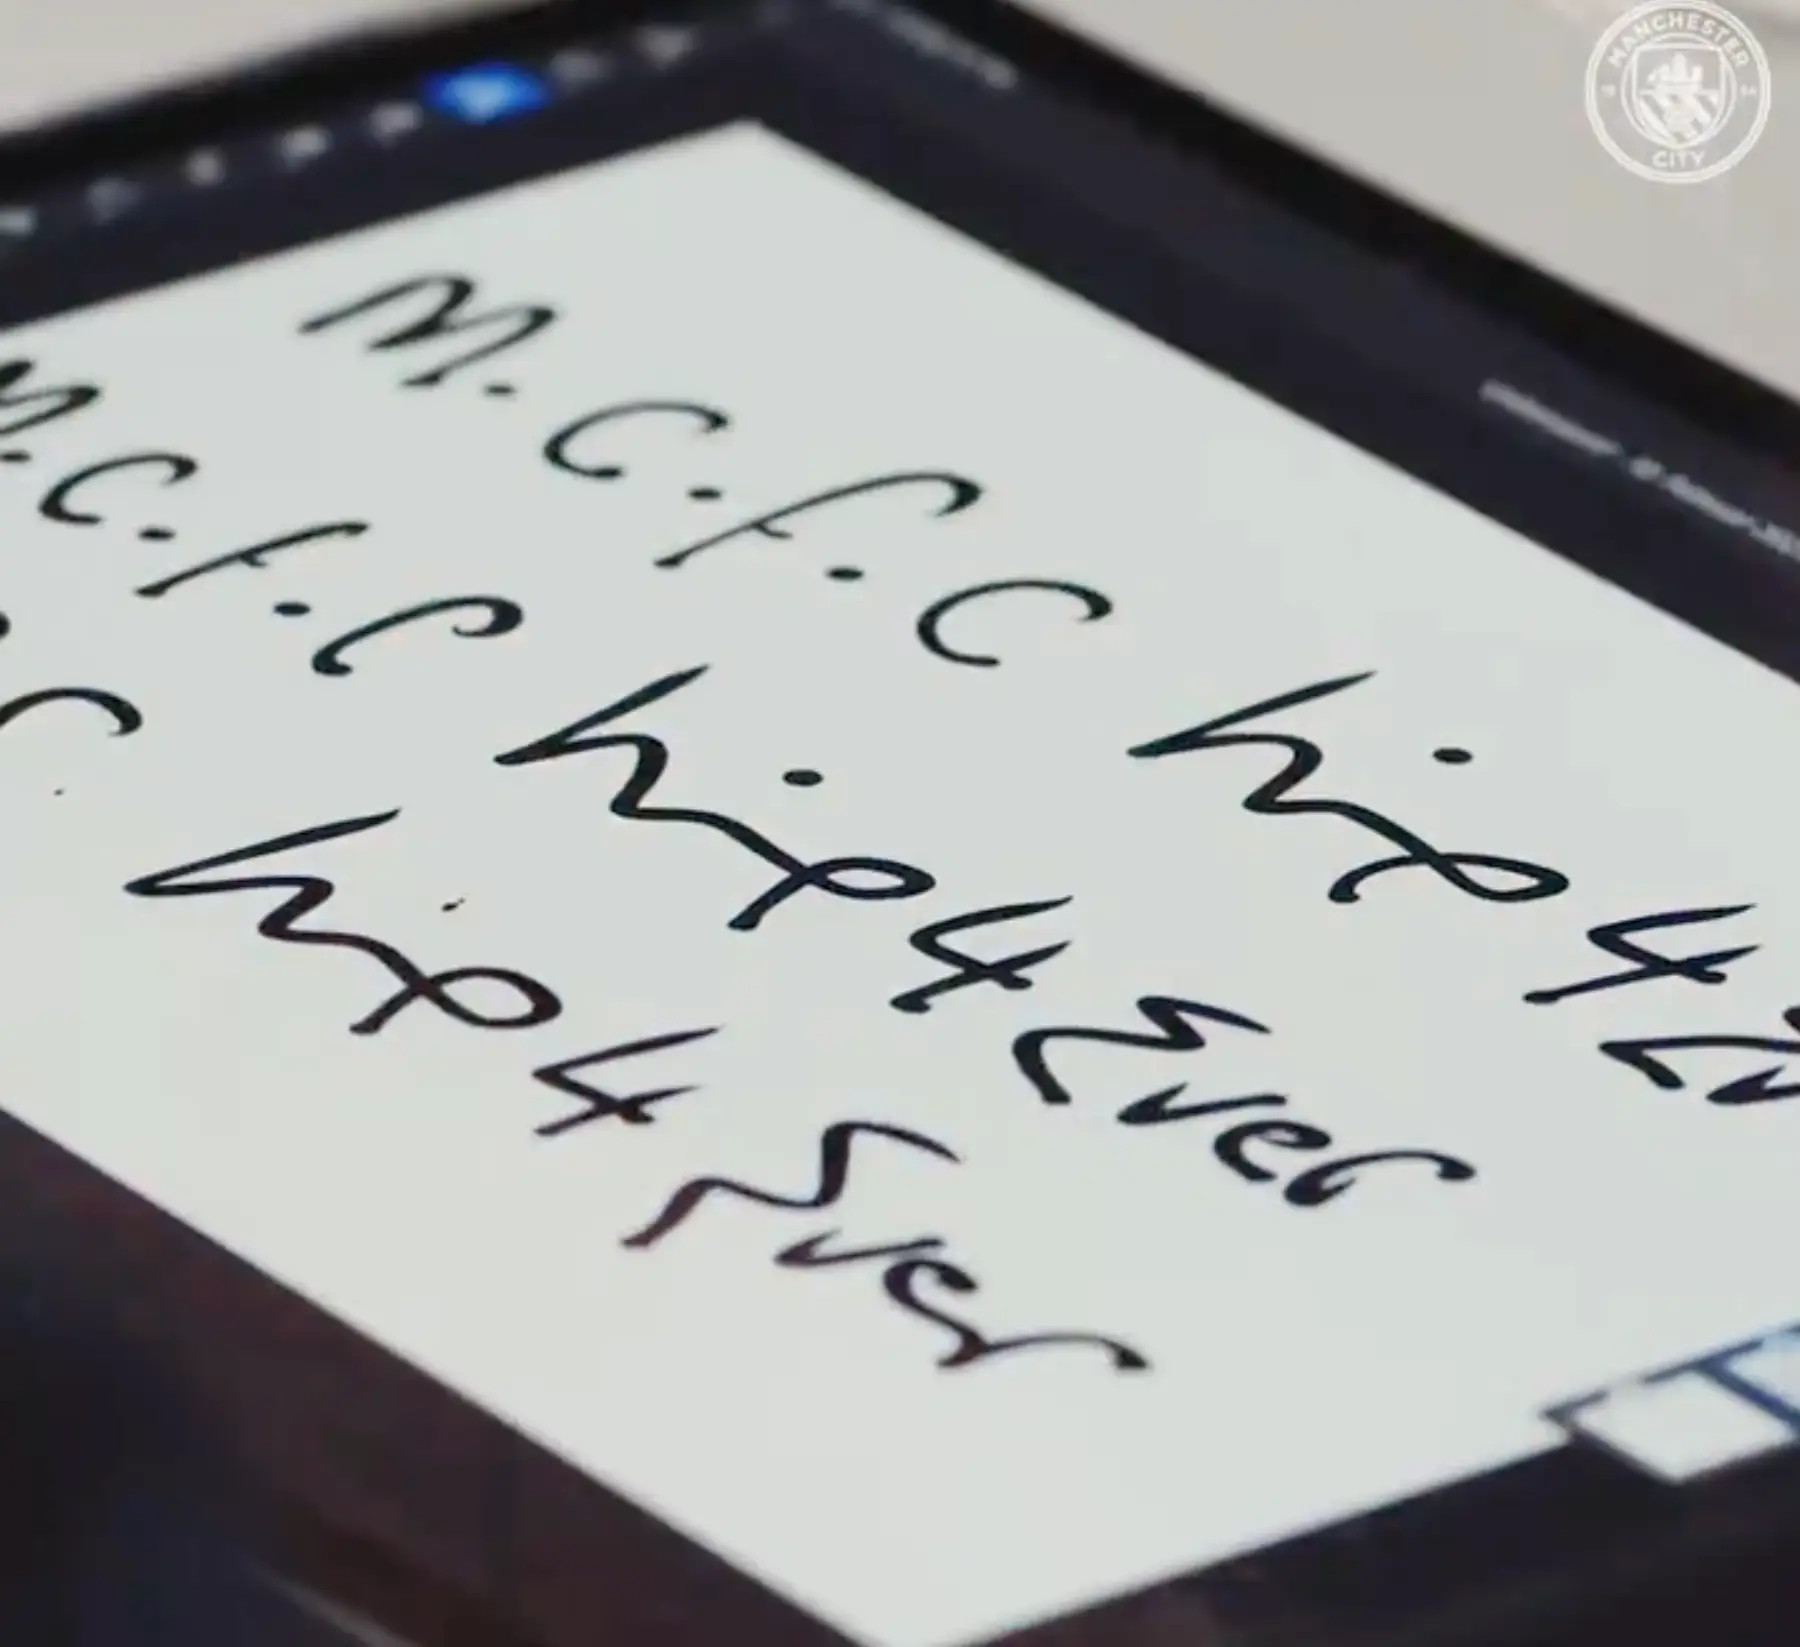 MANCHESTER
18 94
CITY
M.C.f.C hip 4 Ev
M.C.f.C hip 4 Ever
C hip 4 Ever